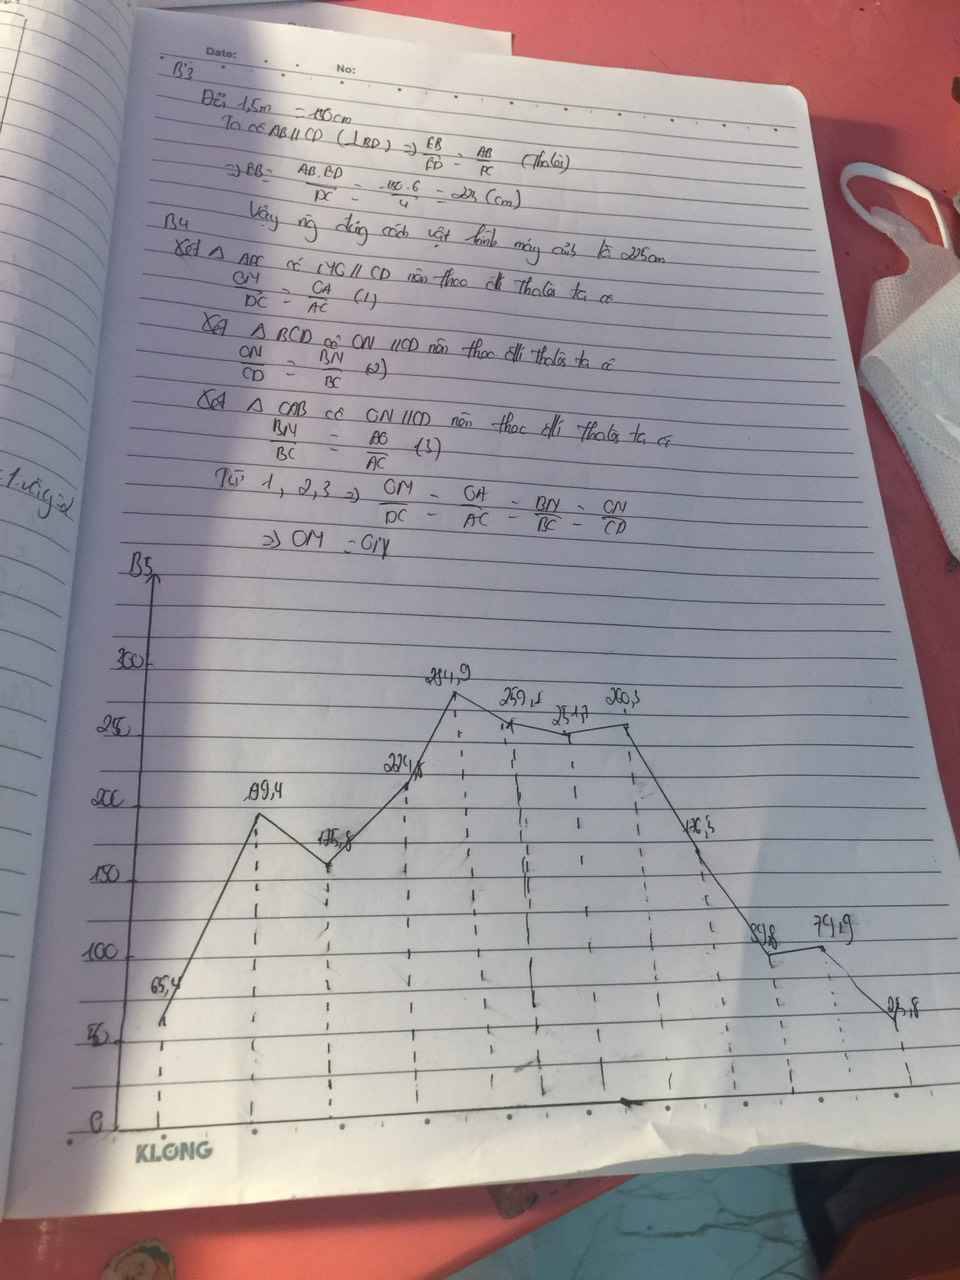 Date:
No:
B3
Đổi 1,5m = 150cm
Ta có AB // CD (⊥BD) => EB/ED = AB/DC (Thalès)
=> EB = AB.ED/DC = 150.6/4 = 225 (cm)
Vậy ng đứng cách vật kính máy ảnh là 225cm
B4
Xét △ ADC có // CD nên theo đl Thalès ta có
OM/DC = OA/AC (1)
Xét △ BCD có ON // CD nên theo đl Thalès ta có
ON/CD = BN/BC (2)
Xét △ CAB có ON // CD nên theo đl Thalès ta có
BN/BC = AO/AC (3)
Từ 1, 2, 3 => OM/DC = OA/AC = BN/BC = ON/CD
=> OM = ON
B5
300
284,9
259,1
251,7
260,3
250
224,8
200
199,4
175,8
176,5
150
100
79,9
65,4
50
0
KLONG